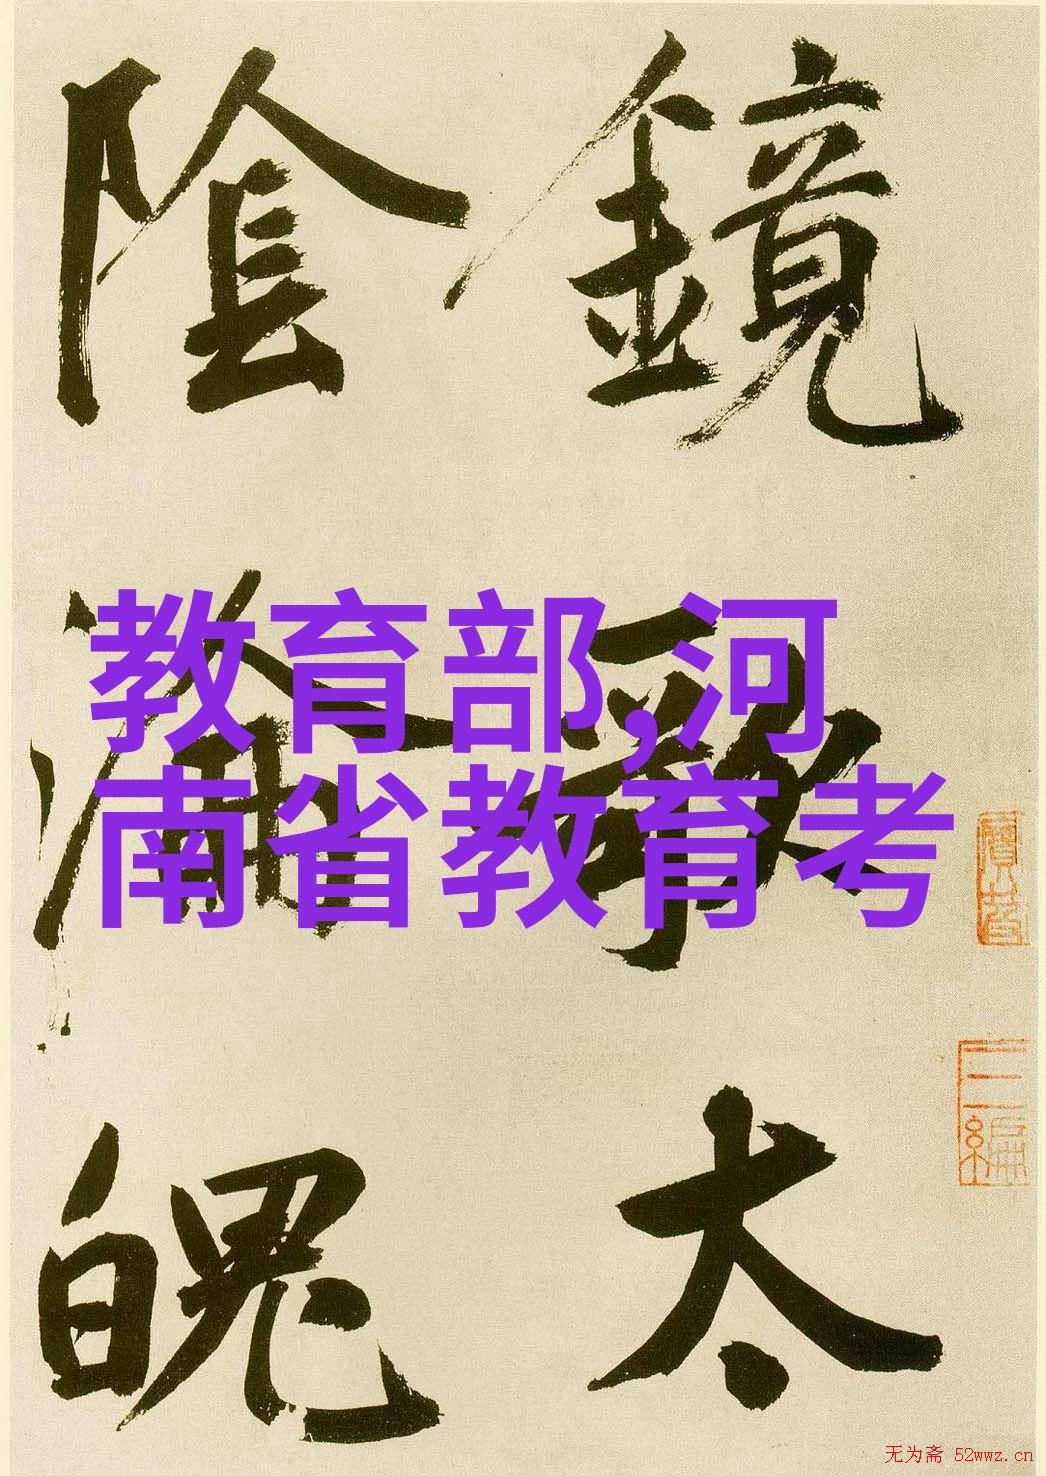 鏡
太
陰
淪
魄
教育部,河
南省教育考
三編
无为斋 52wwz.cn